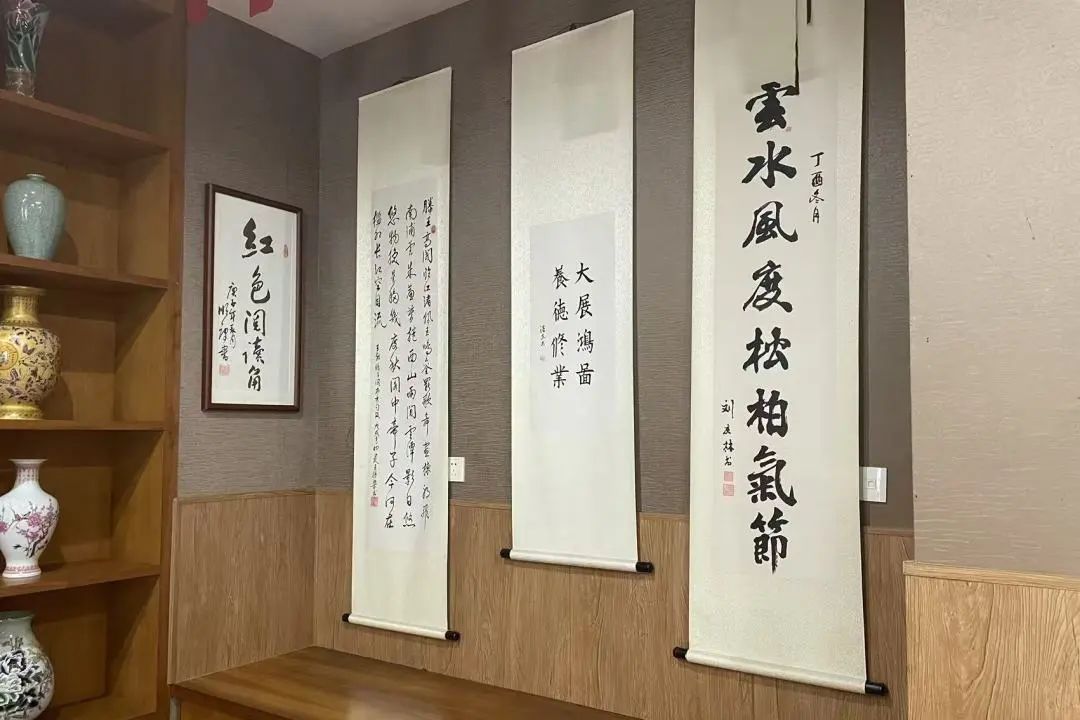 红色阅读角
滕王高阁临江渚佩玉鸣鸾罢歌舞画栋朝飞
南浦云朱帘暮卷西山雨闲云潭影日悠
悠物换星移几度秋阁中帝子今何在
槛外长江空自流
大展鴻啚
養德修業
丁酉冬月
雲水風度松柏氣節